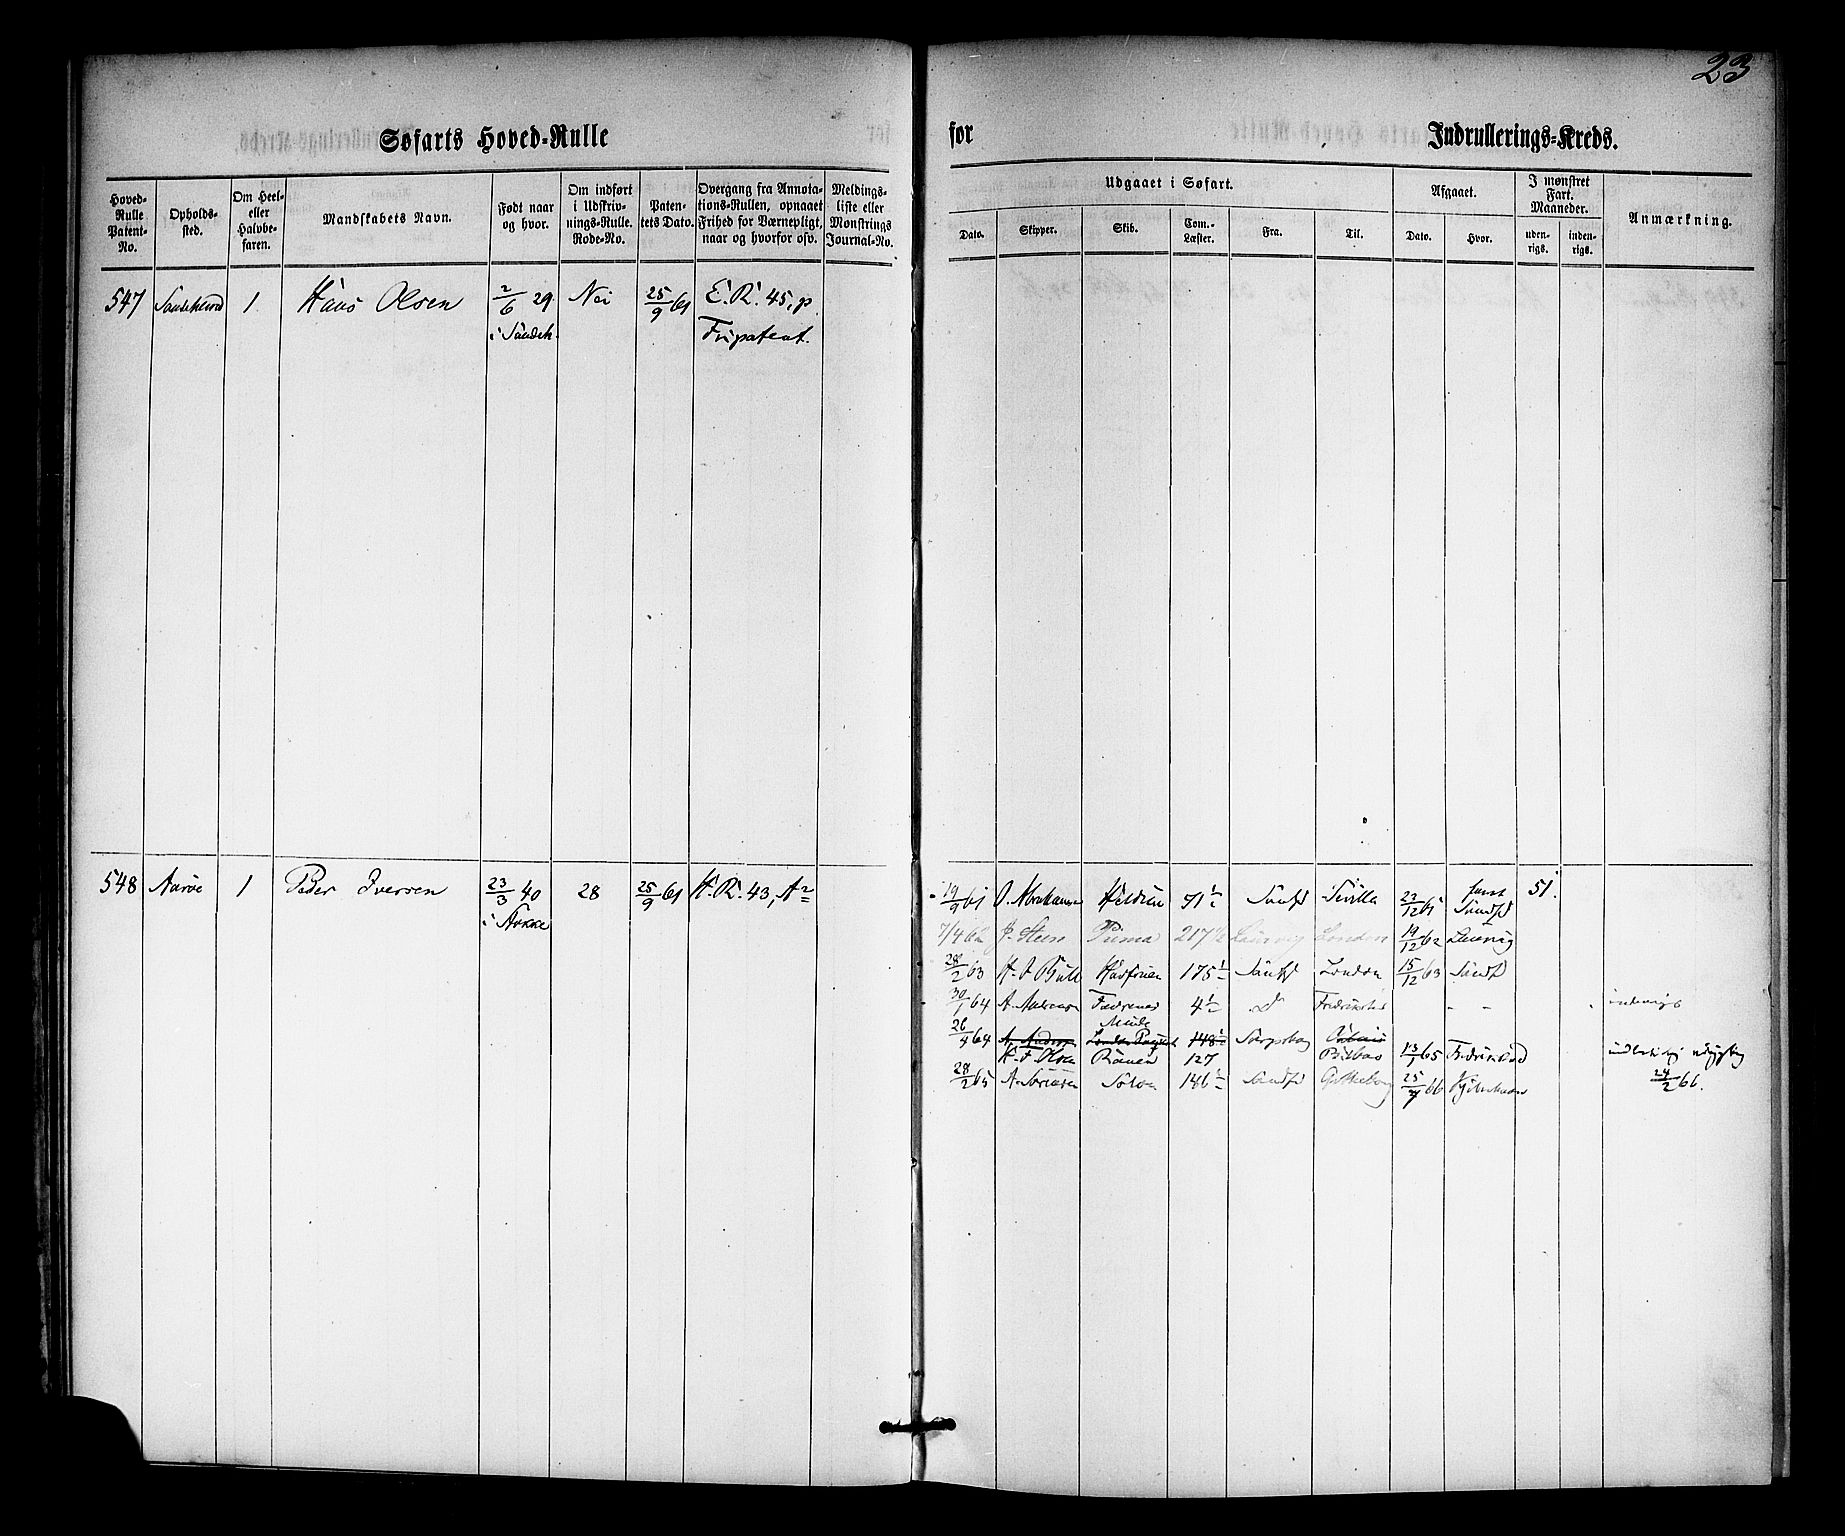 23
Søfarts Hoved-Rulle for Indrullerings-Kreds.
Hoved-Rulle Patent-No.
Opholds-sted.
Om Heel- eller Halvbe-faren.
Mandskabets Navn.
Født naar og hvor.
Om indført i Udskriv-nings-Rulle. Rode-No.
Paten-tets Dato.
Overgang fra Annota-tions-Rullen, opnaaet Frihed for Værnepligt, naar og hvorfor osv.
Meldings-liste eller Mønstrings Journal-No.
Udgaaet i Søfart.
Dato. Skipper. Skib. Com.-Læster. Fra. Til.
Afgaaet.
Dato. Hvor.
I mønstret Fart. Maaneder.
uden-rigs. inden-rigs.
Anmærkning.
547 1. Hans Olsen 2/6 29 Nei 25/9 61 E. R. 45, p.
i Sandeh. Fripatent.
548 Aarøe 1 Peder Iversen 23/3 40 28 25/9 61 H. R. 43, A
19/9 61 O. Abrahamsen 91 1/2 Sandfd Sevilla 22/12 61 Sandfd 51.
7/4 62 P. Steen Puma 217 1/2 Laurvig London 19/12 62 Laurvig
28/2 63 H. J. Bull Havfruen 175 1/2 Sandfd London 15/12 63 Sandfd
30/1 64 A. 4 1/2 Fredrikstad - - indenrigs
Minde
26/4 64 A. Anders London Packet 148 1/2 Sarpsborg
H. F. Olsen 127 Bilbao 13/1 65 Fredrikstad
28/2 65 A. Sørensen Solon 146 1/2 Sandfd Gottenborg 25/7 66 Kjøbenhavn 24/2 66.